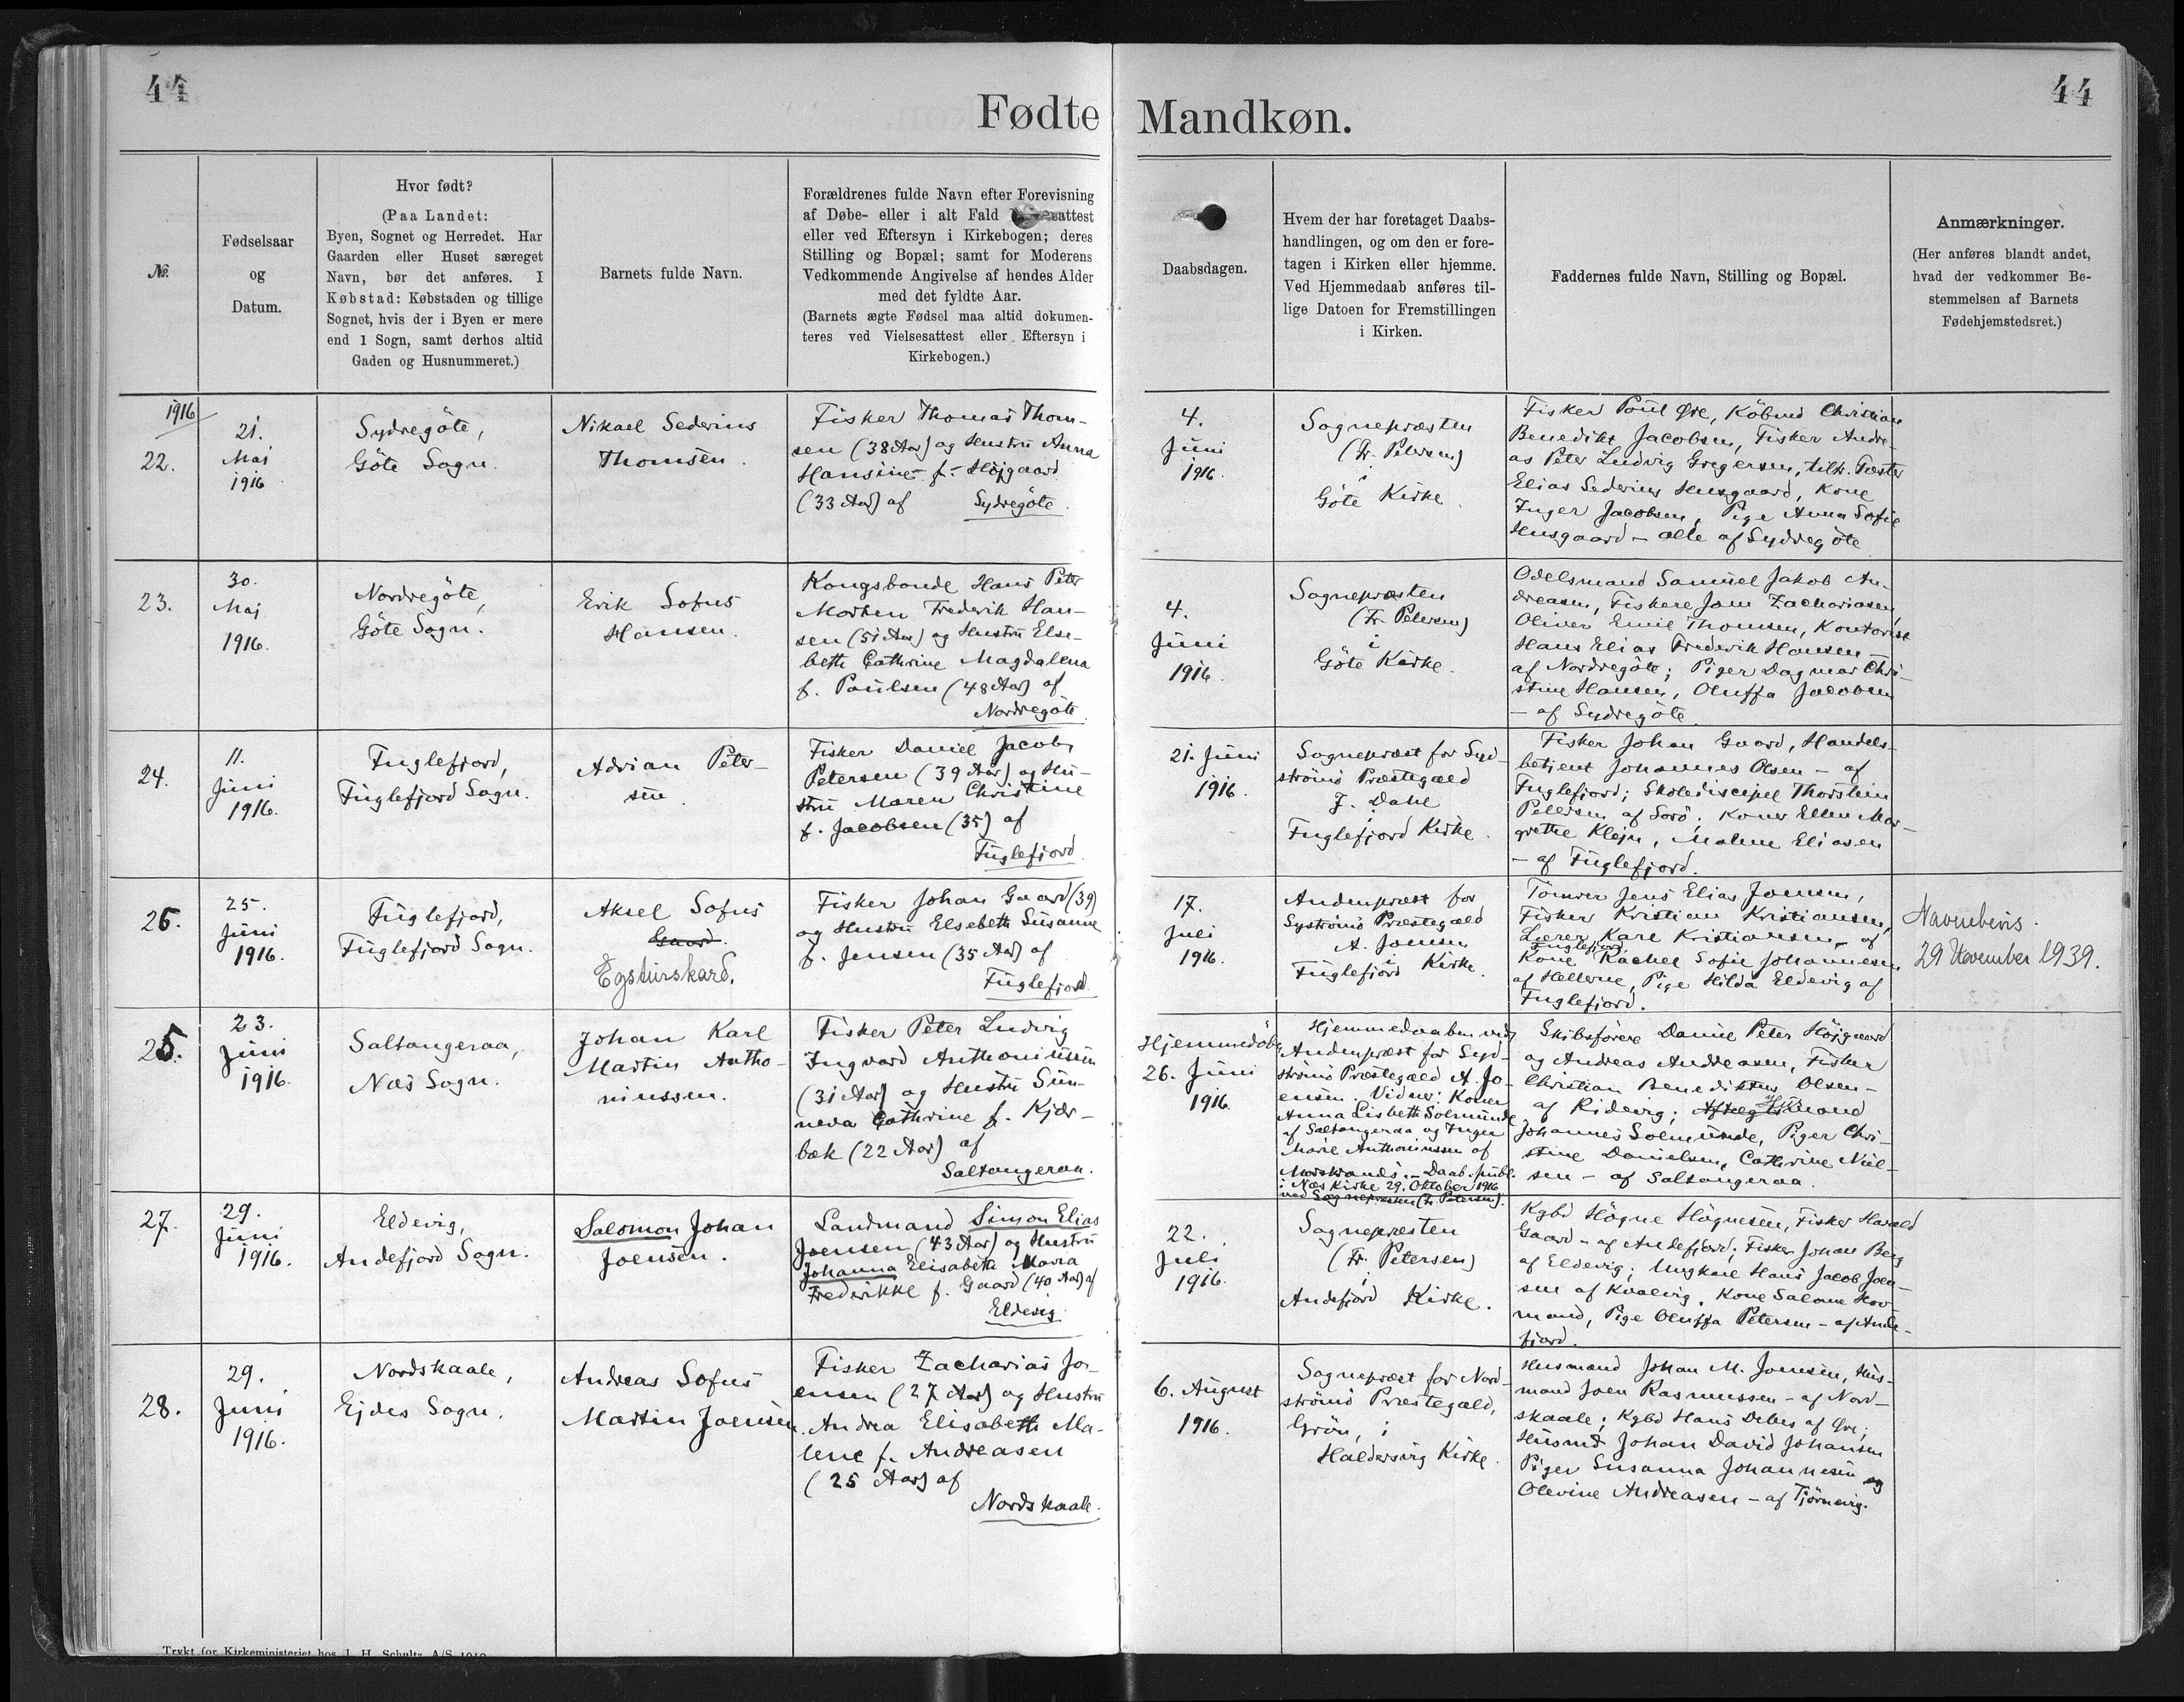 44
44
Fødte Mandkøn.
№.
Fødselsaar
og
Datum.
Hvor født?
(Paa Landet:
Byen, Sognet og Herredet. Har
Gaarden eller Huset særeget
Navn, bør det anføres. I
Købstad: Købstaden og tillige
Sognet, hvis der i Byen er mere
end 1 Sogn, samt derhos altid
Gaden og Husnummeret.)
Barnets fulde Navn.
Forældrenes fulde Navn efter Forevisning
af Døbe- eller i alt Fald
eller ved Eftersyn i Kirkebogen; deres
Stilling og Bopæl; samt for Moderens
Vedkommende Angivelse af hendes Alder
med det fyldte Aar.
(Barnets ægte Fødsel maa altid dokumen-
teres ved Vielsesattest eller Eftersyn i
Kirkebogen.)
Daabsdagen.
Hvem der har foretaget Daabs-
handlingen, og om den er fore-
tagen i Kirken eller hjemme.
Ved Hjemmedaab anføres til-
lige Datoen for Fremstillingen
i Kirken.
Faddernes fulde Navn, Stilling og Bopæl.
Anmærkninger.
(Her anføres blandt andet,
hvad der vedkommer Be-
stemmelsen af Barnets
Fødehjemstedsret.)
1916
22.
21.
Maj
1916
Sydregöte,
Göte Sogn.
Nikael Sederius
Thomsen.
Fisker Thomas Thom-
sen (38 Aar) og Hustru Anna
Hansine f. Höjgaard
(33 Aar) af Sydregöte.
4.
Juni
1916.
Sognepræsten
(Fr. Petersen)
i
Göte Kirke.
Fisker Poul Øre, Købmd Christian
Benedikt Jacobsen, Fisker Andre-
as Peter Ludvig Gregersen, Fæster
Elias Sederius Husgaard, Kone
Inger Jacobsen, Pige Anna Sofie
Husgaard - alle af Sydregöte
23.
30.
Maj
1916.
Nordregöte,
Göte Sogn.
Erik Sofus
Hansen.
Kongsbonde Hans Peter
Morten Frederik Han-
sen (51 Aar) og Hustru Else-
beth Cathrine Magdalena
f. Poulsen (48 Aar) af
Nordregöte.
4.
Juni
1916.
Sognepræsten
(Fr. Petersen)
i
Göte Kirke.
Odelsmand Samuel Jakob An-
dreasen, Fiskere Joen Zachariasen,
Oliver Emil Thomsen, Kontorist
Hans Elias Frederik Hansen -
af Nordregöte; Piger Dagmar Chri-
stine Hansen, Oluffa Jacobsen
- af Sydregöte.
24.
11.
Juni
1916.
Fuglefjord,
Fuglefjord Sogn.
Adrian Peter-
sen.
Fisker Daniel Jacob
Petersen (39 Aar) og Hu-
stru Maren Christine
f. Jacobsen (35) af
Fuglefjord.
21. Juni
1916.
Sognepræst for Syd-
strömö Præstegæld
J. Dahl
i
Fuglefjord Kirke.
Fisker Johan Gaard, Handels-
betjent Johannes Olsen - af
Fuglefjord; Skolediscipel Thorstein
Petersen af Sorö; Koner Ellen Mar-
grethe Klejn, Malene Eliasen
- af Fuglefjord.
26.
25.
Juni
1916.
Fuglefjord,
Fuglefjord Sogn.
Aksel Sofus
Gaard.
Egsturskard.
Fisker Johan Gaard (39)
og Hustru Elsebeth Susanne
f. Jensen (35 Aar) af
Fuglefjord.
17.
Juli
1916.
Andenpræst for
Syströmö Præstegæld
A. Joensen
i
Fuglefjord Kirke.
Tömrer Jens Elias Joensen,
Fisker Kristian Kristiansen,
Lærer Karl Kristiansen - af
Fuglefjord
Kone Rachel Sofie Johannesen
af Hellerne, Pige Hilda Eldevig af
Fuglefjord.
Navnebevis.
29 November 1939.
25.
23.
Juni
1916.
Saltangeraa,
Næs Sogn.
Johan Karl
Martin Antho-
niussen.
Fisker Peter Ludvig
Ingvard Anthoniussen
(31 Aar) og Hustru Sün-
neva Cathrine f. Kjær-
bæk (22 Aar) af
Saltangeraa.
Hjemmedöbt
26. Juni
1916.
Hjemmedaaben ved
Andenpræst for Syd-
strömö Præstegæld A. Jo-
ensen. Vidner: Koner
Anna Lisbeth Solmunde
af Saltangeraa og Inger
Marie Anthoniussen af
Morskranes. - Daab. publ.
i Næs Kirke 29. Oktober 1916
ved Sognepræsten (Fr. Petersen).
Skibsförere Daniel Peter Höjgaard
og Andreas Andreasen, Fisker
Christian Benediktus Olsen -
af Ridevig; Aftægtsmand
Johannes Solmunde, Piger Chri-
stine Danielsen, Cathrine Niel-
sen - af Saltangeraa.
27.
29.
Juni
1916.
Eldevig,
Andefjord Sogn.
Salomon Johan
Joensen.
Landmand Simon Elias
Joensen (43 Aar) og Hustru
Johanna Elisabeta Maria
Frederikke f. Gaard (40 Aar) af
Eldevig.
22.
Juli
1916.
Sognepræsten
(Fr. Petersen)
i
Andefjord Kirke.
Kgbd Högne Högnesen, Fisker Harald
Gaard - af Andefjord; Fisker Johan Berg
af Eldevig; Ungkarl Hans Jacob Joen-
sen af Kvalvig. Kone Salome Hov-
mand, Pige Oluffa Petersen - af Ande-
fjord.
28.
29.
Juni
1916.
Nordskaale,
Ejdes Sogn.
Andreas Sofus
Martin Joensen.
Fisker Zacharias Jo-
ensen (27 Aar) og Hustru
Andrea Elisabeth Ma-
lene f. Andreasen
(25 Aar) af
Nordskaale.
6. August
1916.
Sognepræst for Nord-
strömö Præstegæld,
Grön, i
Haldersvig Kirke.
Husmand Johan M. Joensen, Hus-
mand Joen Rasmussen - af Nord-
skaale; Kgbd Hans Debes af Øre;
Husmd Johan David Johansen
Piger Susanna Johannesen og
Olevine Andreasen - af Tjörnevig.
Trykt for Kirkeministeriet hos J. H. Schultz A/S